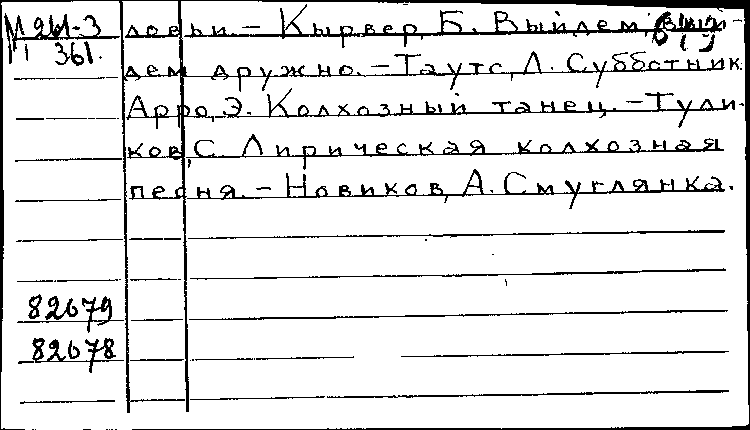 М 261-3
361.
ловьи. – Кырвер, Б. Выйдем, вый-
дем дружно. – Таутс, Л. Субботник.
Арро, Э. Колхозный танец. – Тули-
ков, С. Лирическая колхозная
песня. – Новиков, А. Смуглянка.
82679
82678